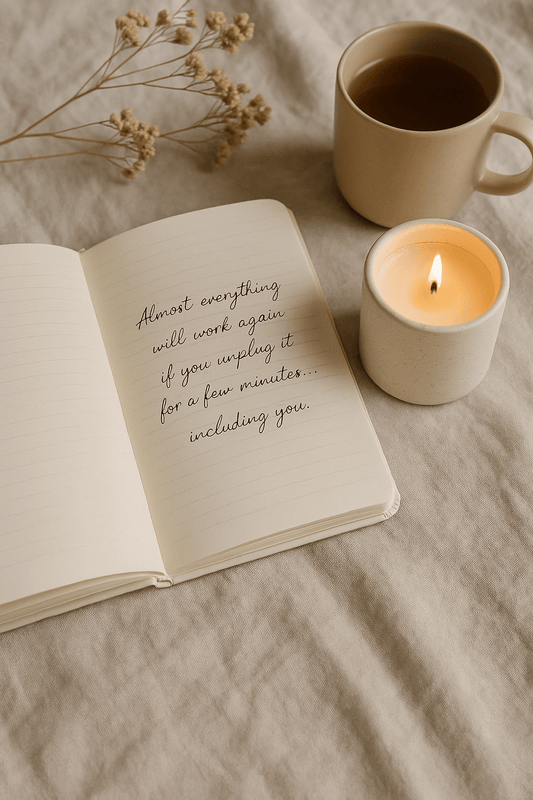 Almost everything
will work again
if you unplug it
for a few minutes...
including you.